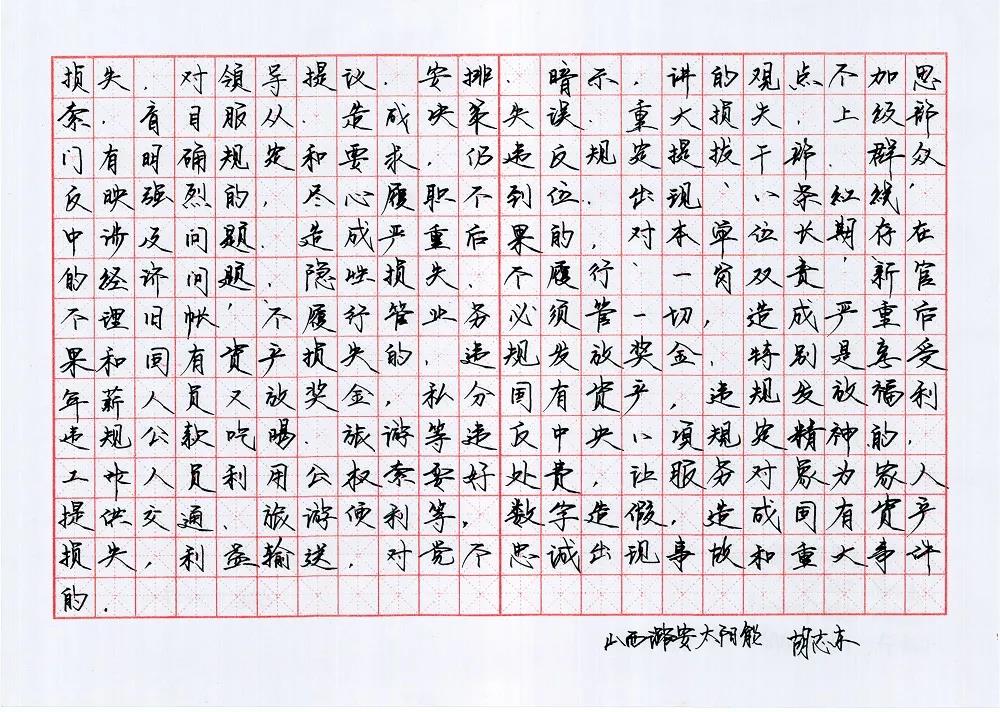 损失，对领导提议、安排、暗示，讲的观点不加思
索，盲目服从，造成决策失误、重大损失，上级部
门有明确规定和要求，仍违反规定提拔干部，群众
反映强烈的，尽心履职不到位，出现“八条红线”
中涉及问题，造成严重后果的，对本单位长期存在
的经济问题，隐性损失，不履行“一岗双责”“新官
不理旧帐”不履行管业务必须管一切，造成严重后
果和国有资产损失的，违规发放奖金，特别是享受
年薪人员又放奖金，私分国有资产，违规发放福利
违规公款吃喝、旅游等违反中央八项规定精神的，
工作人员利用公权索要好处费，让服务对象为家人
提供交通、旅游便利等，数字造假，造成国有资产
损失，利益输送，对党不忠诚出现事故和重大事件
的．
山西潞安太阳能 胡志东